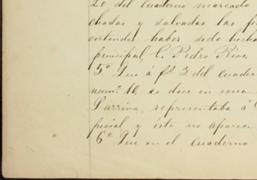 20 del Cuaderno marcado
chadas y salvadas las fo
entender haber sido hecha
principal, C. Pedro Riva
5º Que á fª 2 del Cuader
num.º 16, se dice en una
Parrina, representaba á
pecial y ésto no aparece
6º Que en el Cuaderno